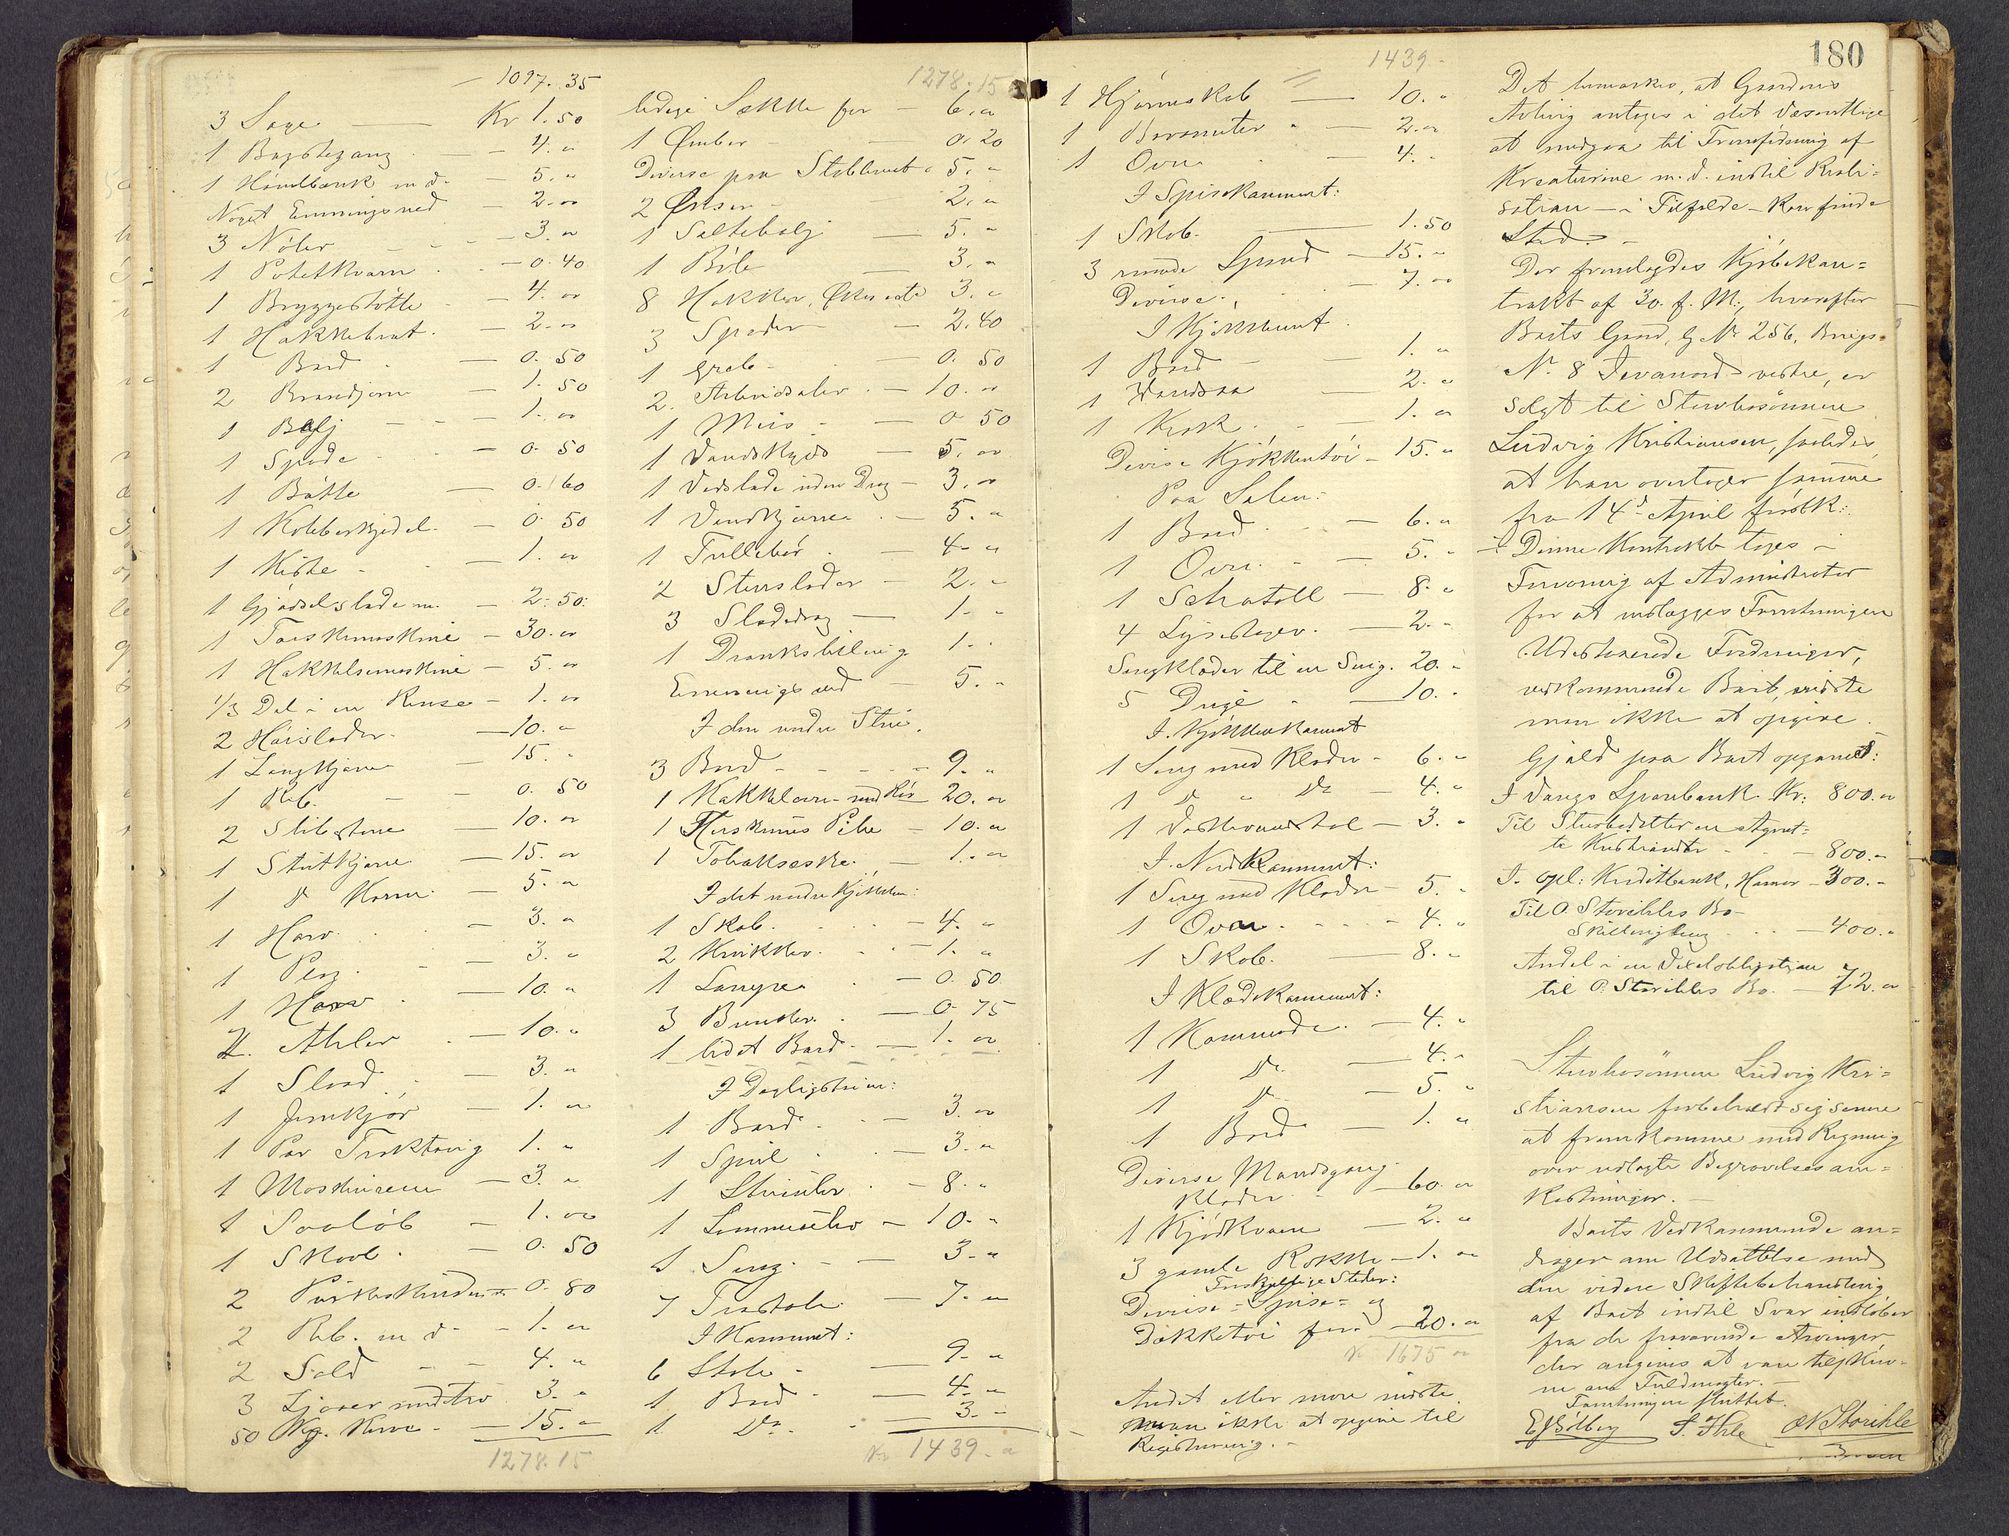 1097.35
3 Sage — Kr 1.50
1 Bagstegang — 4. "
1 Høvelbænk m. d. — 5. "
Noget Emningsved — 2. "
3 Nøler — 3. "
1 Potetkværn — 0.40
1 Bryggestøtte — 4. "
1 Hakkebræt — 2. "
1 Bord — 0.50
2 Brandjern — 1.50
1 Balj — 1. "
1 Spade — 0.50
1 Bøtte — 0.60
1 Kobberkjedel — 0.50
1 Kiste — 1. "
1 Gjødselslæde m. — 2.50
1 Tærskemaskine — 30. "
1 Hakkelsemaskine — 5. "
1/3 Del i en Rense — 1. "
2 Høislæder — 10. "
1 Langkjærre — 15. "
1 Reb — 0.50
2 Slibstene — 10. "
1 Stutkjærre — 15. "
1 d° Kærre — 5. "
1 Harv — 3. "
1 Plog — 3. "
1 Harv — 10. "
2 Akler — 10. "
1 Slaad — 3. "
1 Jernkjør — 1. "
1 Par Træktoug 1. "
1 Maskinrem — 3. "
1 Saaløb — 1. "
1 Skovl — 0.50
2 0.80
2 Reb m d — 1. "
2 Sold — 4. "
3 Ljaaer med Orv 3. "
50 Kg. — 15. "
1278.15
1278.15
ledige Sække for — 6. "
1 Ømber — 0.20
Diverse paa Stabburet 5. "
2 Økser — 2. "
1 Saltebalj — 5. "
1 Bile — 3. "
8 Hakker, Økser etc 3. "
3 Spader — 2.40
1 Greb — 0.50
2 Arbeidsæler — 10. "
1 Meis — 0.50
1 Vandskjæs — 5. "
1 Vedslæde uden Drag — 3. "
1 Vandkjærre — 5. "
1 Trillebør — 4. "
2 Stenslæder — 2. "
3 Slædedrag — 1. "
1 1. "
Emningsved — 5. "
I den nedre Stue.
3 Bord — 9. "
1 Kakkelovn med Rør 20. "
1 Merskums Pibe — 10. "
1 Tobaksæske — 1. "
I det nedre Kjøkken:
1 Skab — 4. "
2 Krakker — 1. "
1 Lampe — 0.50
3 0.75
1 lidet Bord — 1. "
I Dagligstuen:
1 Bord — 3. "
1 Speil — 3. "
1 Stueuhr — 8. "
1 Lommeuhr — 10. "
1 Seng — 3. "
7 Træstole — 7. "
I Kammeret:
6 Stole — 9. "
1 Bord — 4. "
1 D° — 3. "
Kr 1439. "
180
1439.
1 Hjørneskab — 10. "
1 Barometer — 2. "
1 Ovn — 4. "
I Spisekammeret:
1 Skab — 1.50
3 runde Spand — 15. "
Diverse — 7. "
I Kjøkkenet
1 Bord — 1. "
1 Vandsaa — 2. "
1 Krak — 1. "
Diverse Kjøkkentøi — 15. "
Paa Salen:
1 Bord — 6. "
1 Ovn — 5. "
1 Schatoll — 8. "
4 Lysestager — 2. "
Sengklæder til en Seng 20. "
5 10. "
I Kjøkkenkammeret
1 Seng med Klæder — 6. "
1 D° " D° — 4. "
1 3. "
I Nordkammeret:
1 Seng med Klæder — 5. "
1 Ovn — 4. "
1 Skab — 8. "
I Klædekammeret:
1 Kommode — 4. "
1 D° — 4. "
1 D° — 5. "
1 Bord — 1. "
Diverse Mandsgang
klæder — 60. "
1 Kjødkværn — 2. "
3 gamle Rokke — 1. "
Forskjellige Steder:
Diverse Spise- og
Dækketøi for — 20. "
Kr 1675 "
Andet eller mere vidste
man ikke at opgive til
Registrering. —
Det bemærkes, at Gaardens
Avling antages i det væsentlige
at medgaa til Fremfødning af
Kreaturene m. d. indtil Reali-
sation — i Tilfælde — kan finde
Sted. —
Der fremlagdes Kjøbekon-
trakt af 30. f. M., hvorefter
Boets Gaard, G. N° 256, Brugs-
N° 8 Jevanord vestre, er
solgt til Stervbosønnen
Ludvig Kristiansen, saaledes
at han overtager samme
fra 14d April førstk:.
Denne Kontrakt toges i
Forvaring af Administrator
for at vedlægges Forretningen
Udestaaende Fordringer,
vedkommende Boet, vidste
man ikke at opgive.
Gjæld paa Boet opgaves:
I Vangs Sparebank Kr: 800. "
Til Stervbodatteren Agnet-
te Kristiansdtr — 800. "
I opl: Kreditbank, Hamar — 300. "
Til O. Storihles Bo
Skillinglaug — 400. "
Andel i en Vexelobligation
til O. Storihles Bo — 72. "
Stervbosønnen Ludvig Kri-
stiansen forbeholdt sig senere
at fremkomme med Regning
over udlagte Begravelsesom-
kostninger. —
Boets Vedkommende an-
drager om Udsættelse med
den videre Skiftebehandling
af Boet indtil Svar indløber
fra de fraværende Arvinger
der angives at være tilskrev-
ne om Fuldmagter. —
Forretningen sluttet.
E Sølberg S. Ihle O N Storihle